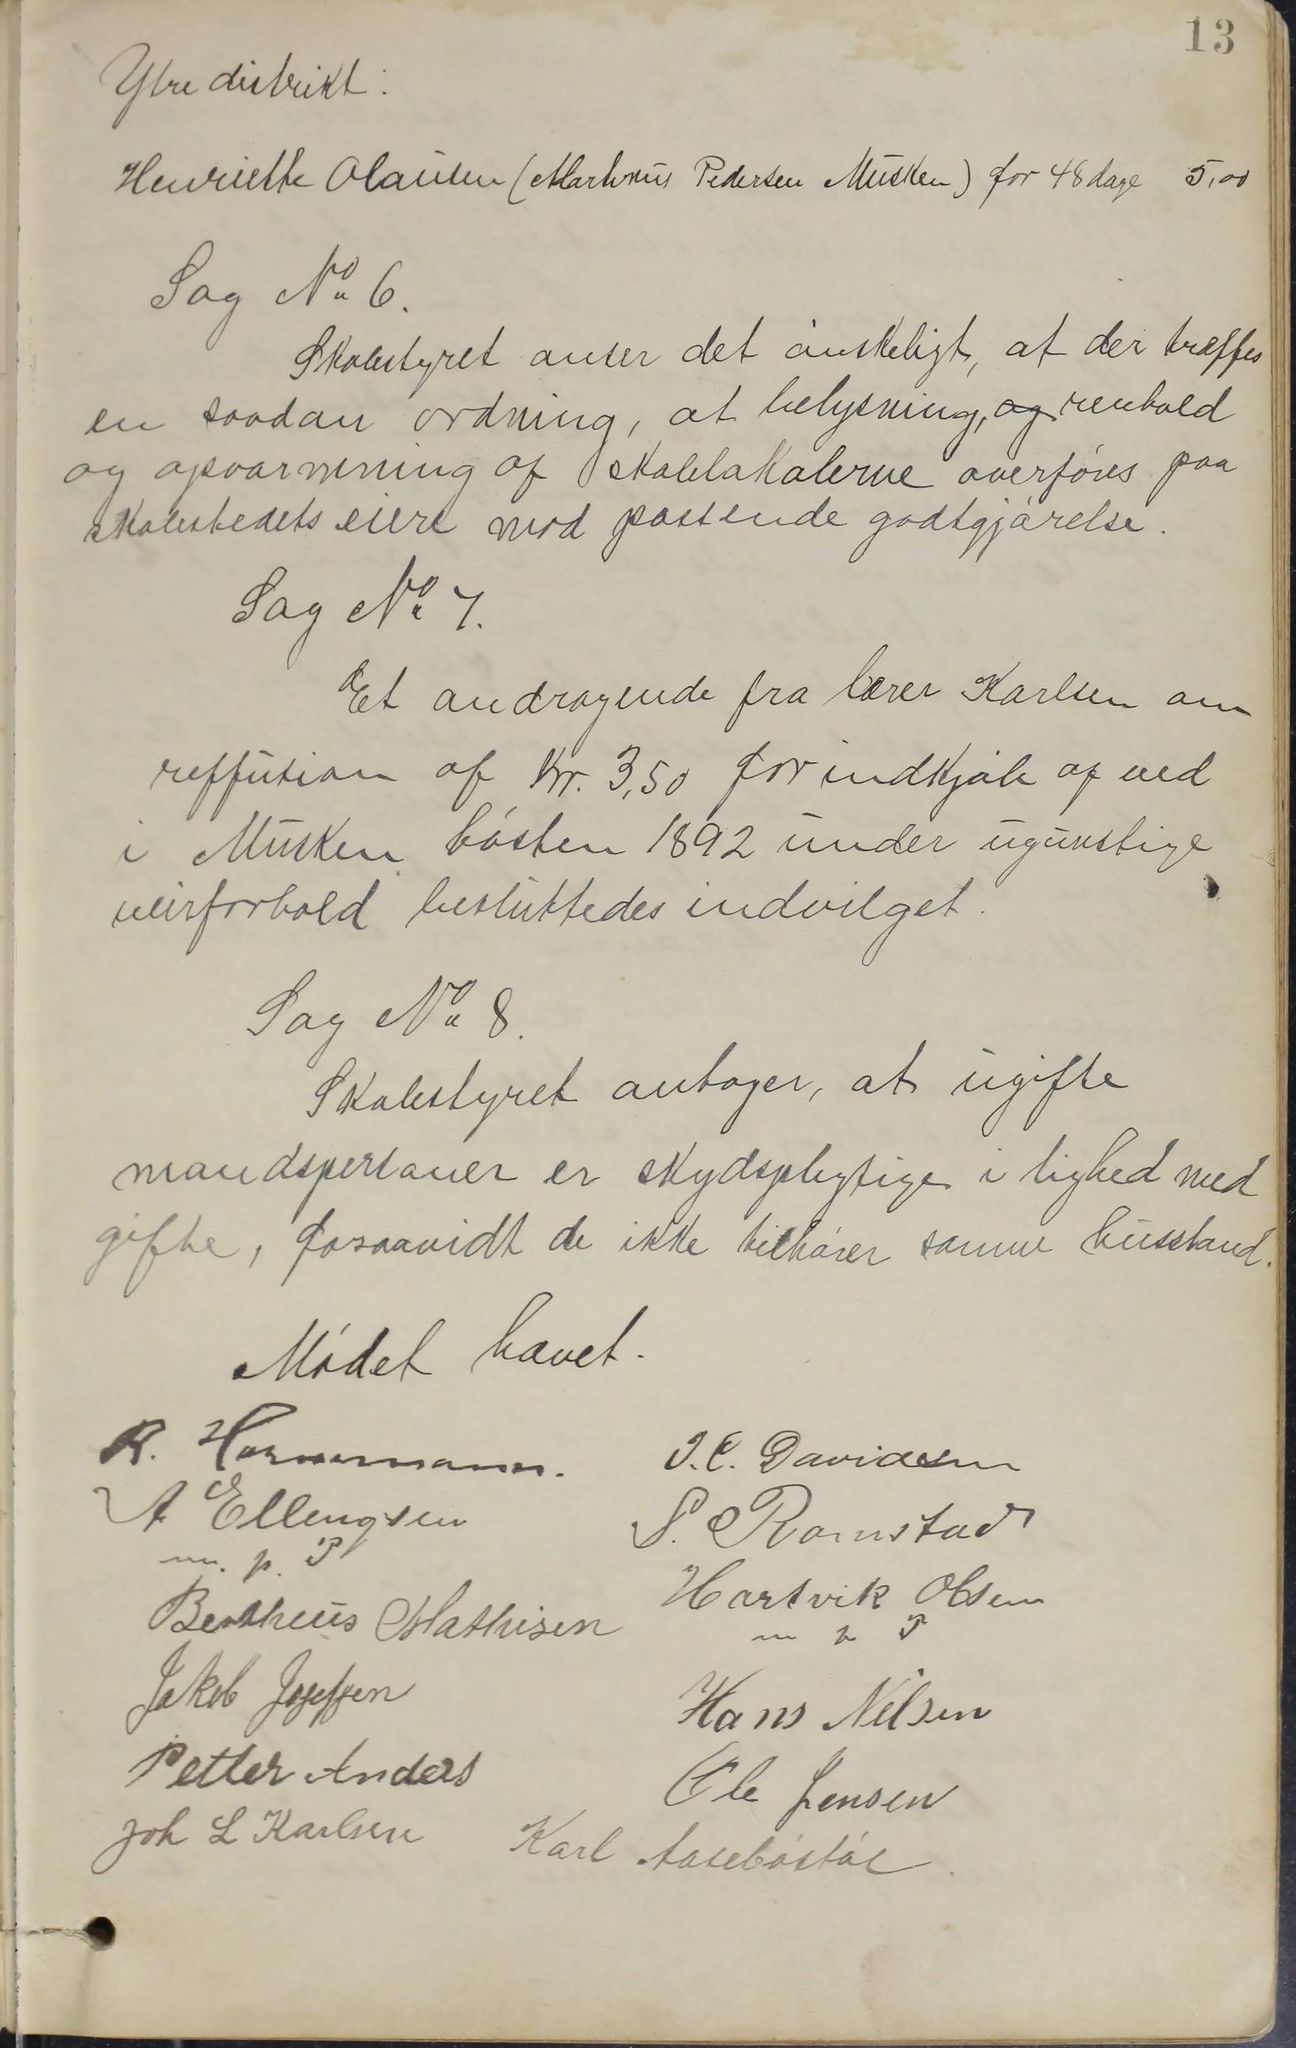 13
Ytre distrikt:
Henriette Olausen (Martinus Pedersen Musken) for 48 dage 5,00
Sag No 6.
Skolestyret anser det ønskeligt, at der træffes
en saadan ordning, at belysning, og renhold
og opvarmning af skolelokalerne overføres paa
skolestedets eiere mod passende godtgjørelse.
Sag No 7.
Et andragende fra lærer Karlsen om
reffusion af kr. 3,50 for indkjøb af ved
i Musken høsten 1892 under ugunstige
veirforhold besluttedes indvilget.
Sag No 8.
Skolestyret antager, at ugifte
mandspersoner er skydspligtige i lighed med
gifte, forsaavidt de ikke tilhører samme husstand.
Mødet hævet.
R. Hornemann. J. C. Davidsen
A Ellengsen S. Romstad
m. p. P Hartvik Olsen
Bertheus Mathisen m p P
Jakob Josefsen Hans Nilsen
Petter Anders Ole Jensen
Joh L Karlsen Karl